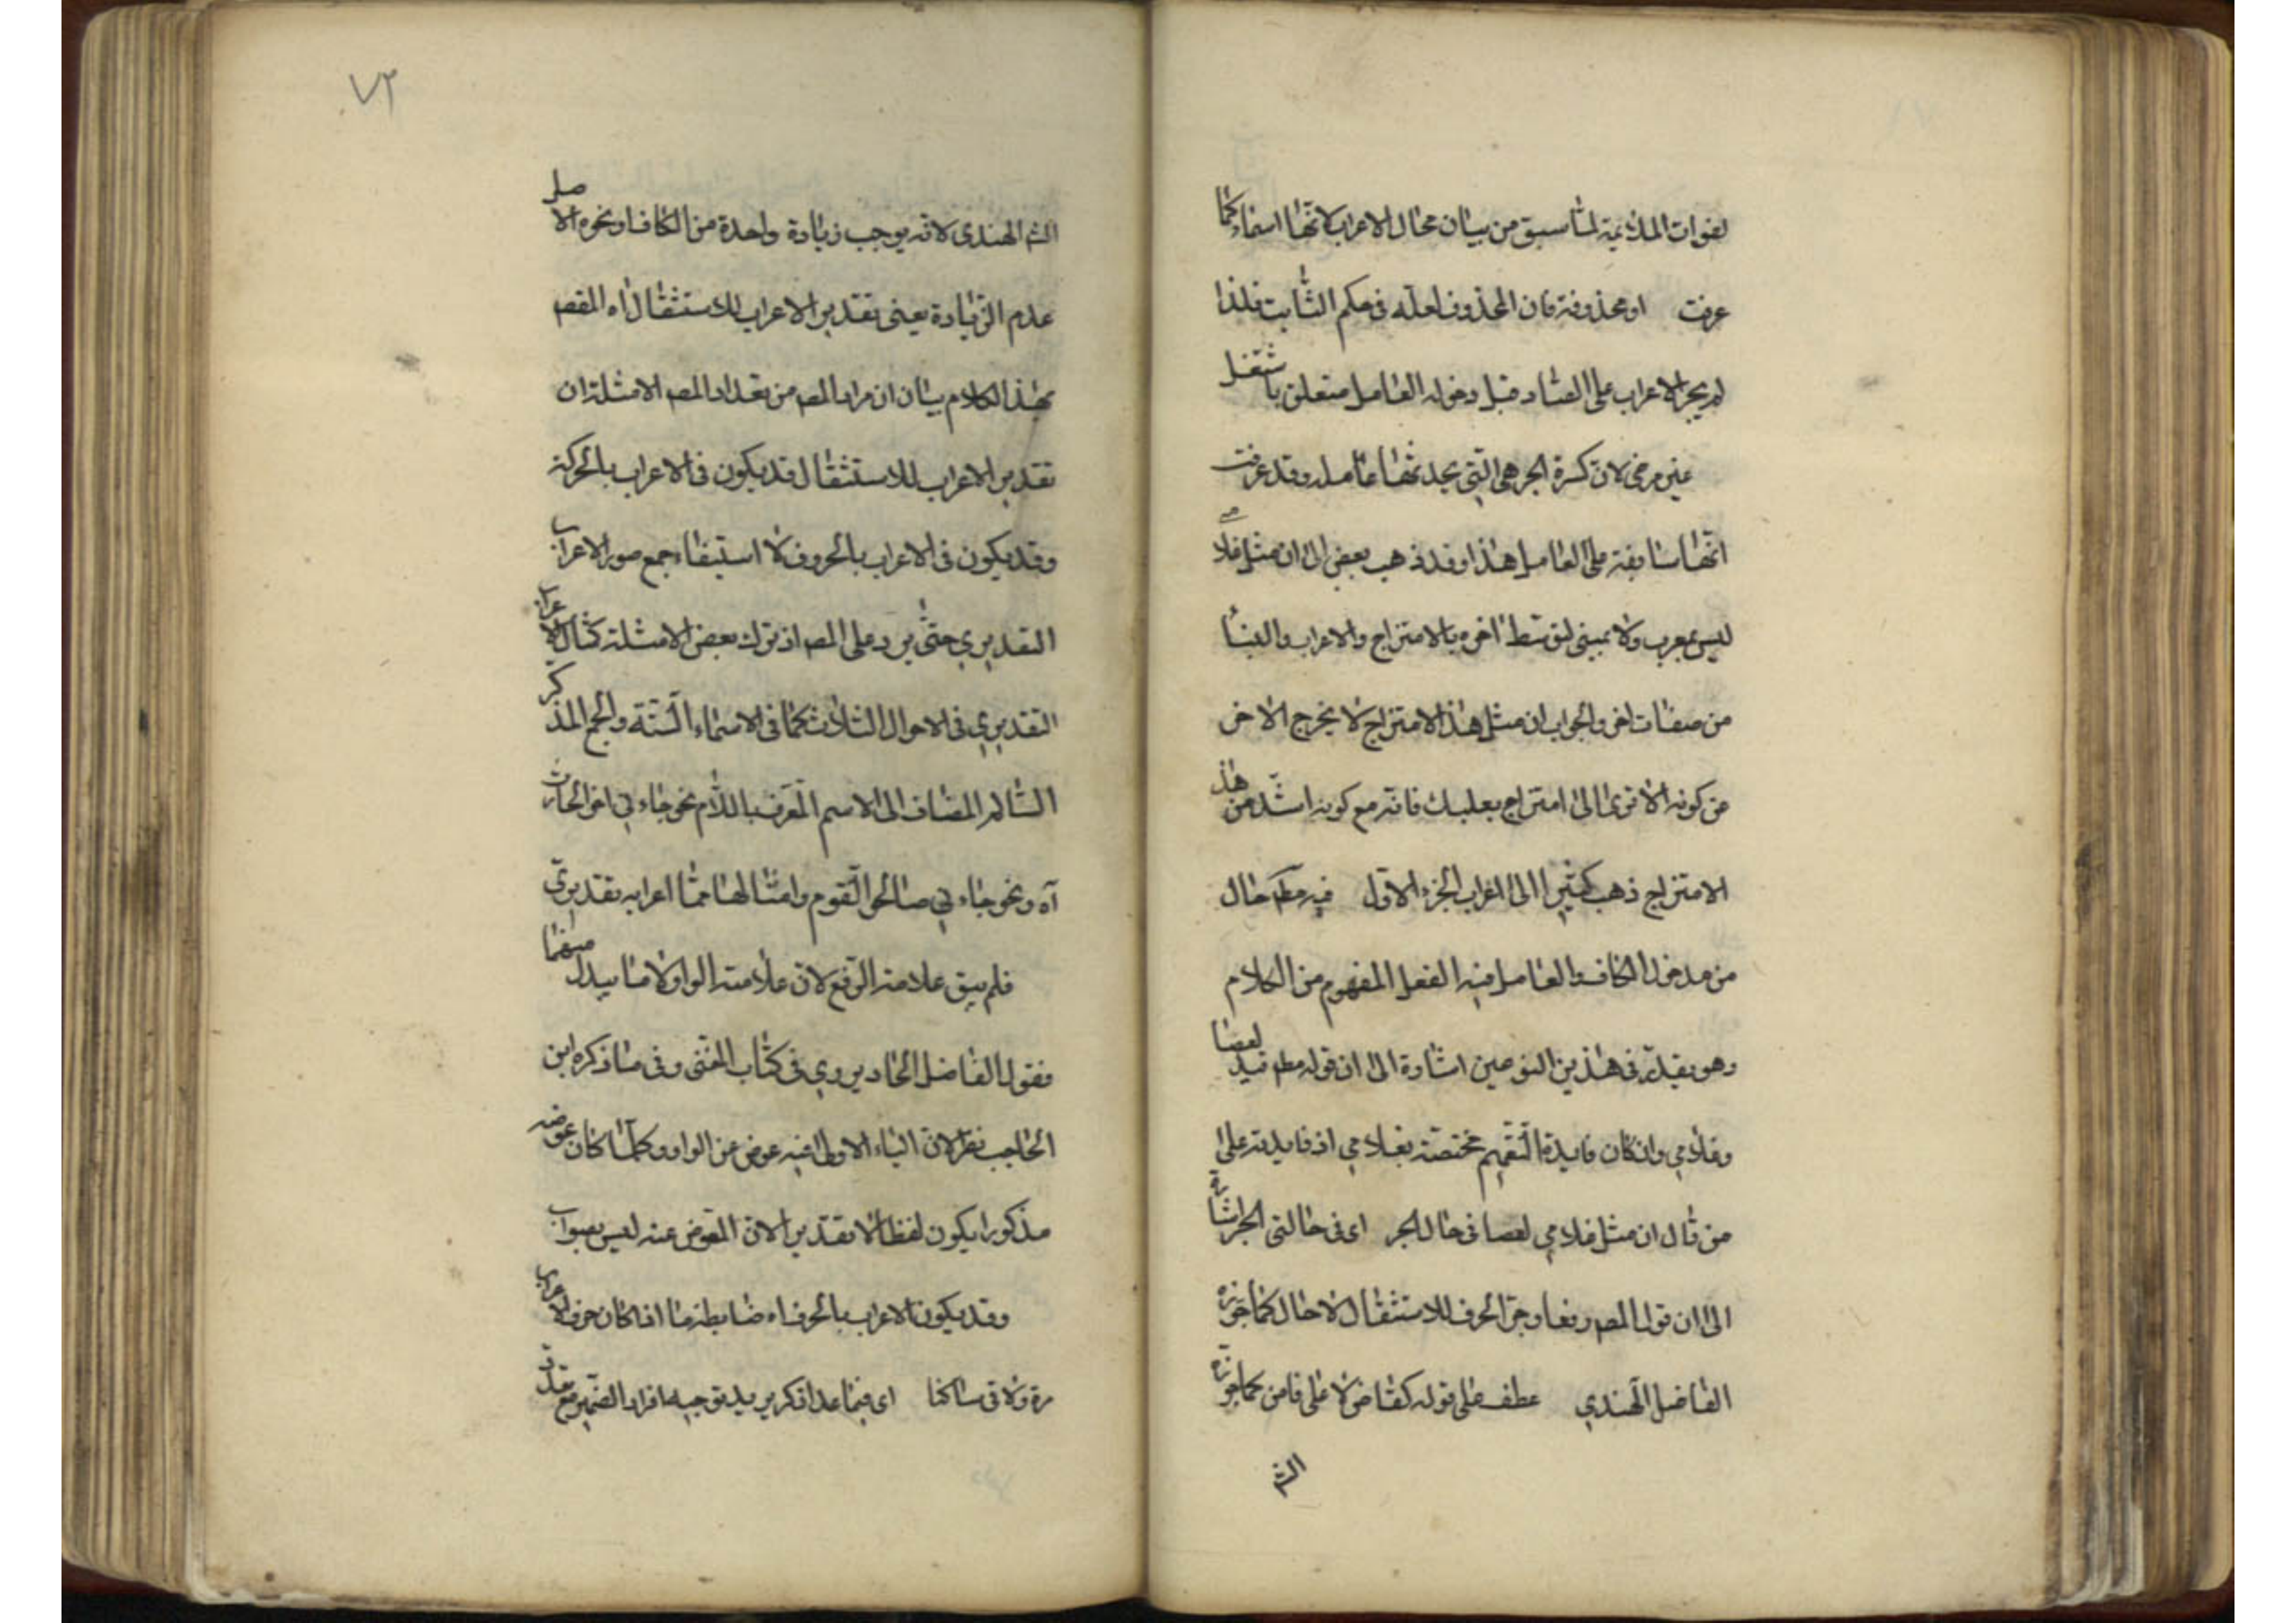 لفوات الملائمة لما سبق من بيان محال الاعراب لانها اسماء كما
عرفت او محذوفة فان المحذوف لعلة فى حكم الثابت فلذا
لم يجر الاعراب على الصاد قبل دخول العامل متعلق باشتغل
غير مرضى لان كسرة الجر هى التى يحدثها عامله وقد عرفت
انها سابقة على العامل هذا وقد ذهب بعض الى ان مثل غلامى
ليس بمعرب ولا بمبنى لتوسط اخره بالامتزاج والاعراب والبناء
من صفات اخر والجواب ان مثل هذا الامتزاج لا يخرج الاخر
عن كونه الا ترى الى امتزاج بعلبك فانه مع كونه اشد من هذا
الامتزاج ذهب كثير الى اعراب الجزء الاول فيه مطم حال
من مدخول الكاف والعامل فيه الفعل المفهوم من الكلام
وهو يقدر فى هذين النوعين اشارة الى ان قوله مطم قيد لعصا
وغلامى وان كان فايدة التعميم مختصة بغلامى اذ فايدته على
من قال ان مثل غلامى لعصا فى حال الجر اى فى حالتى الجر اشارة
الى ان قول المصـ رفعا وجر الحرف للاستثقال لا حال كما جوزه
الفاضل الهندي عطف على قوله كقاض لا على قاض كما جوزه
الشـ
٧٢
الشـ الهندى لانه يوجب زيادة واحدة من الكاف او نحوه الاصل
عدم الزيادة يعنى تقدير الاعراب للاستثقال اه المقصـ
بهذا الكلام بيان ان مراد المصـ من تعداد المصـ الامثلة ان
تقدير الاعراب للاستثقال قد يكون فى الاعراب بالحركة
وقد يكون فى الاعراب بالحروف لا استيفاء جمع صور الاعراب
التقديري حتى يرد على المصـ اذ ترك بعض الامثلة كمثال الاعراب
التقديري فى الاحوال الثلاث كما فى الاسماء الستة والجمع المذكر
السالم المضاف الى الاسم المعرف باللام نحو جاءنى اخو الحارث
آه ونحو جاءنى صالحو القوم وامثالهما مما اعرابه تقديري
فلم يبق علامة الرفع لان علامته الواو لا ما يبدل منهما
فقول الفاضل الجاديروي فى كتاب المغنى وفى ما ذكره ابن
الحاجب نظر لان الياء الاولى فيه عوض عن الواو وكلما كان عوضه
مذكورا يكون لفظا لا تقديرا لان المعوض عنه ليس بصواب
وقد يكون الاعراب بالحرف اه ضابطة ما اذا كان حرف الاعراب
مدة ولاقى ساكنا اى فيما عدا ذكر يريد توجيه افراد الضمير مع تعدد